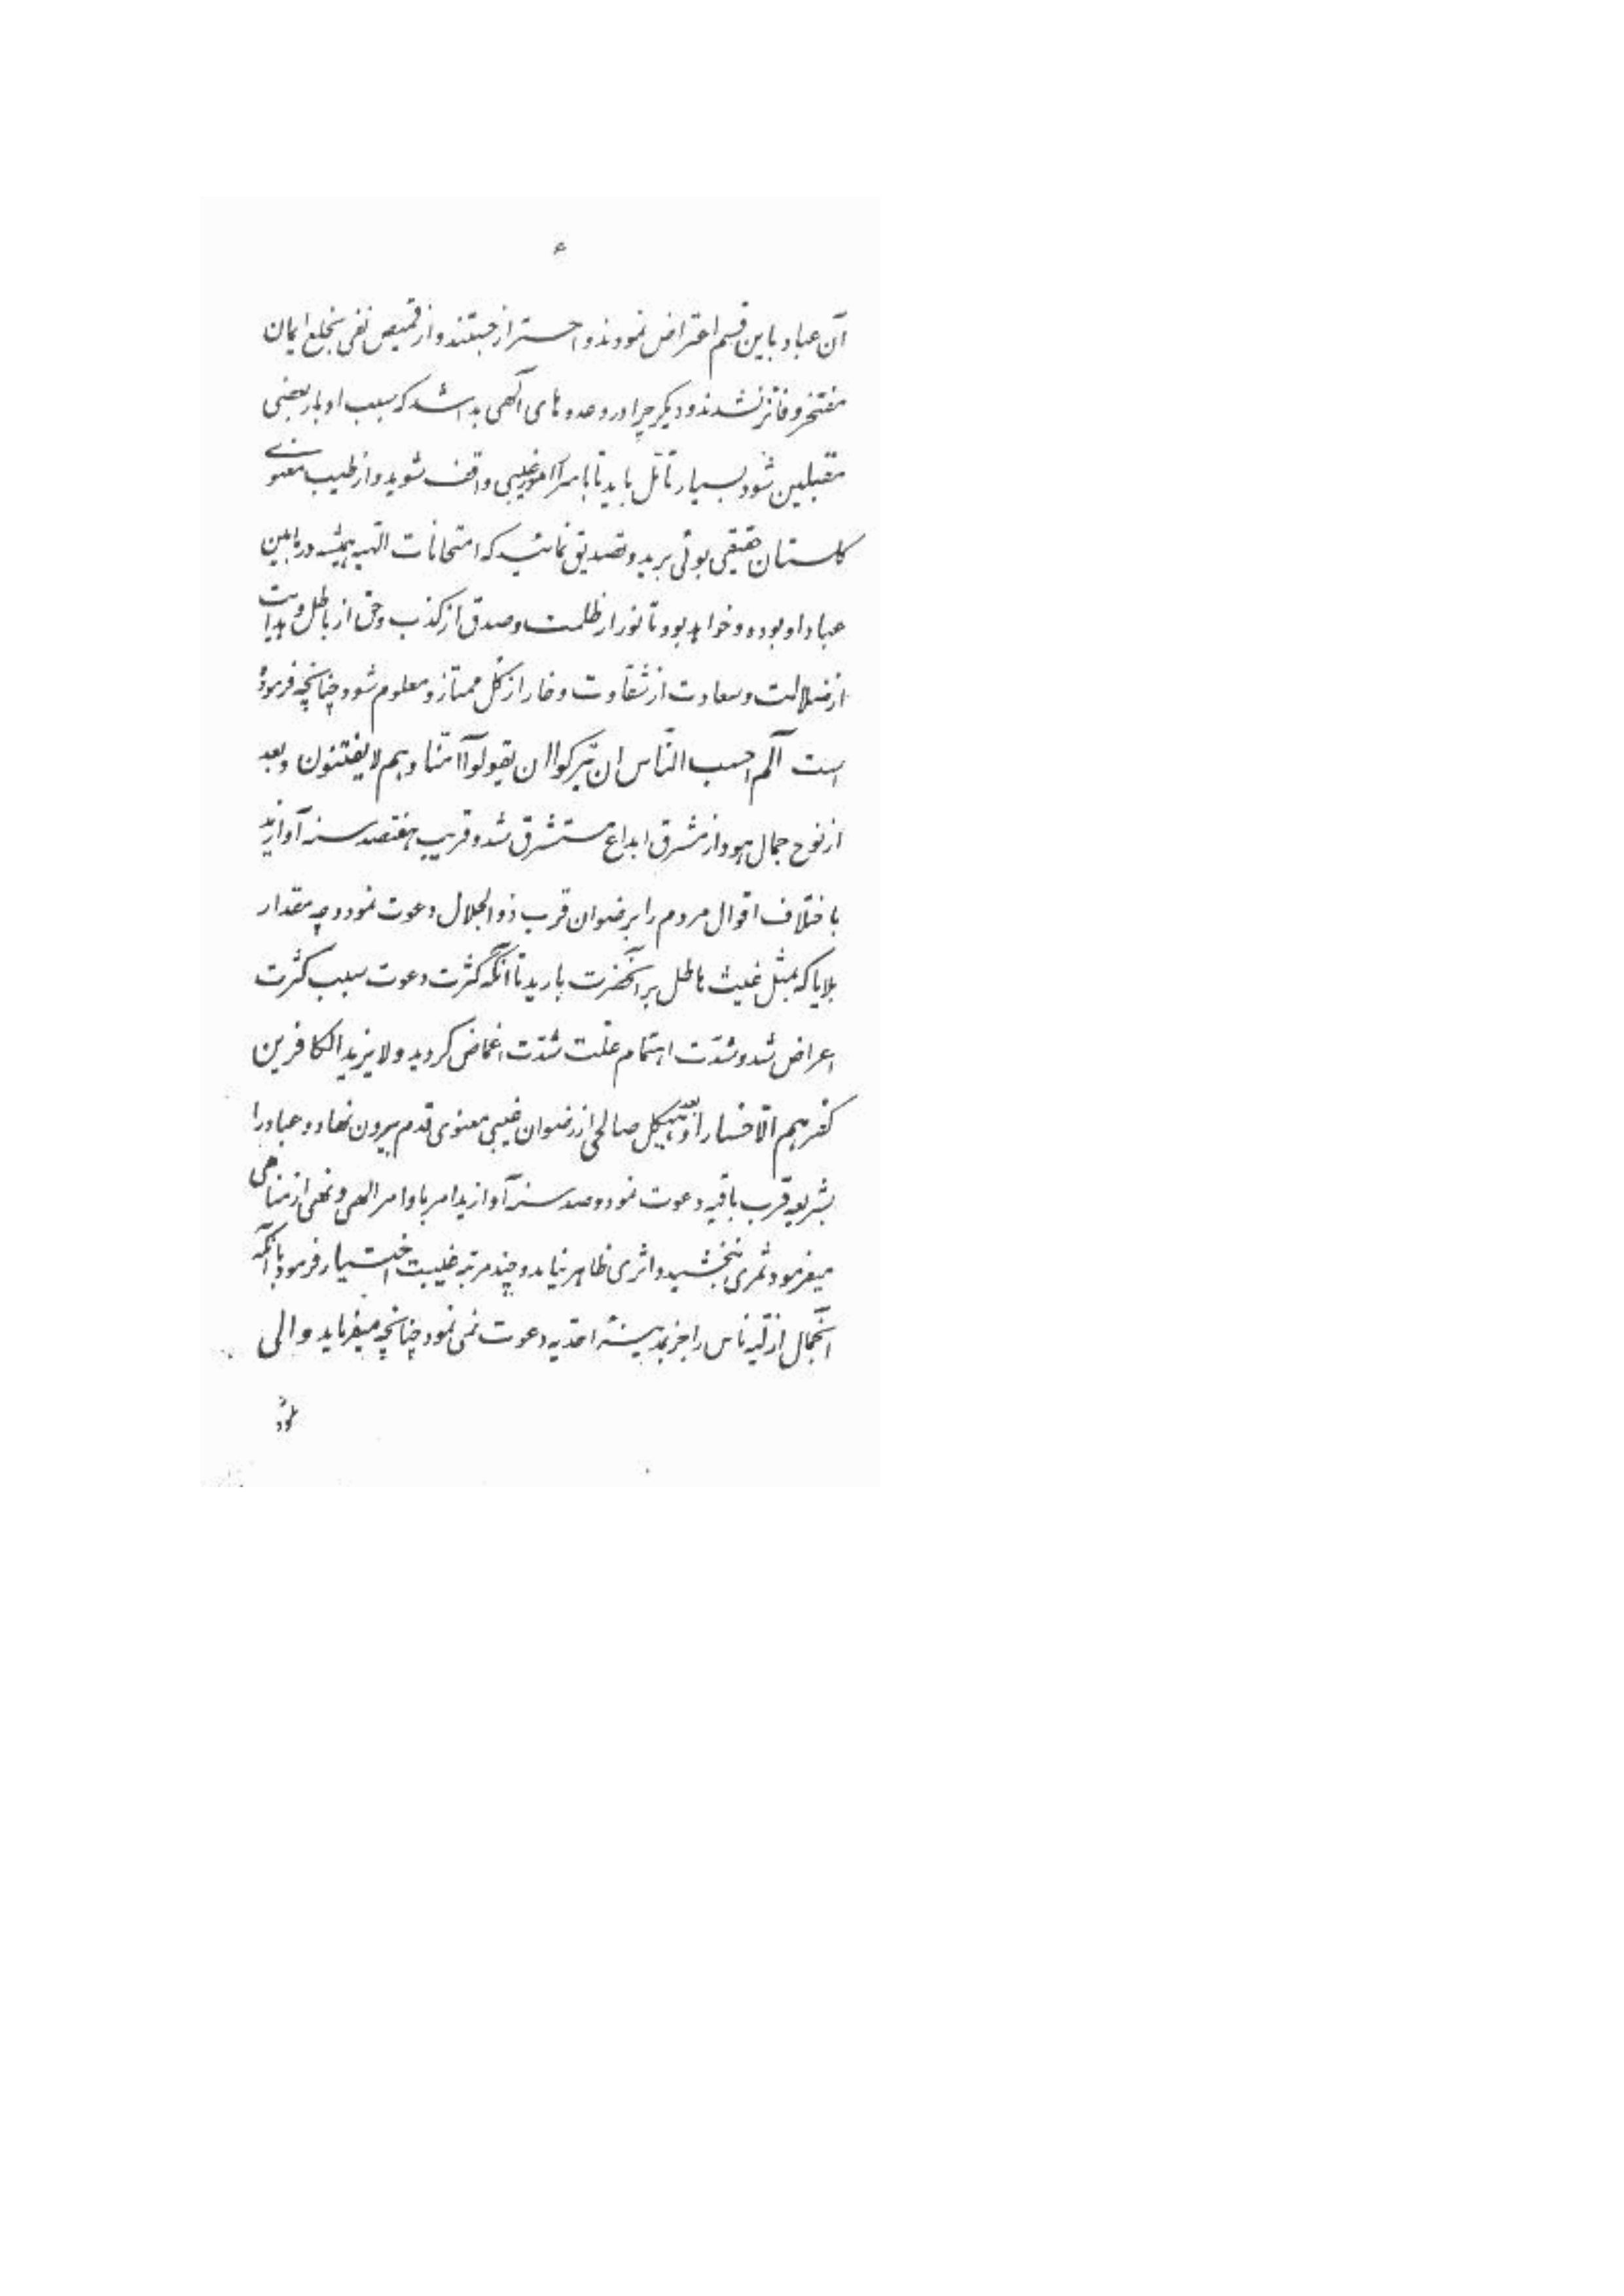 ۶
آن عباد باین قسم اعتراض نمودند و احتراز جستند و از قمیص نفی بخلع ایمان
مفتخر و فائز نشدند و دیگر چرا در وعدوهای آلهی بدا شد که سبب ادبار بعضی
مقبلین شود بسیار تأمّل باید تا باسرار امور غیبی واقف شوید و از طیب معنوی
گلستان حقیقی بوئی برید و تصدیق نمائید که امتحانات الهیه همیشه در مابین
عباد او بوده و خواهد بود تا نور از ظلمت و صدق از کذب و حق از باطل و هدایت
از ضلالت و سعادت از شقاوت و خار از گل ممتاز و معلوم شود چنانچه فرموده
است آلم احسب النّاس ان یترکوا ان یقولوا آمنّا و هم لا یفتنون و بعد
از نوح جمال هود از مشرق ابداع مستشرق شد و قریب هفتصد سنه او ازید
باختلاف اقوال مردم را برضوان قرب ذو الجلال دعوت نمود و چه مقدار
بلایا که بمثل غیث هاطل بر آنحضرت بارید تا آنکه کثرت دعوت سبب کثرت
اعراض شد و شدّت اهتمام علّت شدّت اغماض گردید و لا یزید الکافرین
کفرهم الّا خسارا و بعد هیکل صالحی از رضوان غیبی معنوی قدم بیرون نهاد و عباد را
بشریعه قرب باقیه دعوت نمود و صد سنه او ازید امر باوامر الهی و نهی از مناهی
میفرمود ثمری نبخشید و اثری ظاهر نیامد و چند مرتبه غیبت اختیار فرمود با آنکه
آنجمال ازلیّه ناس را جز بمدینه احدّیه دعوت نمی نمود چنانچه میفرماید و الی
ثمود